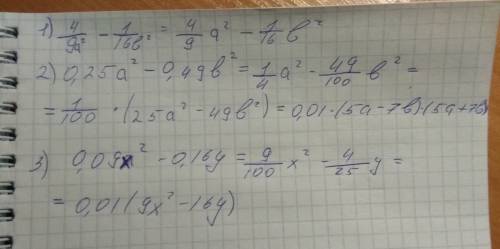 1) 4/9a² - 1/16b² = 4/9 a² - 1/16 b²
2) 0,25a² - 0,49b² = 1/4 a² - 49/100 b² =
= 1/100 · (25a² - 49b²) = 0,01·(5a-7b)·(5a+7b)
3) 0,09x² - 0,16y = 9/100 x² - 4/25 y =
= 0,01(9x² - 16y)